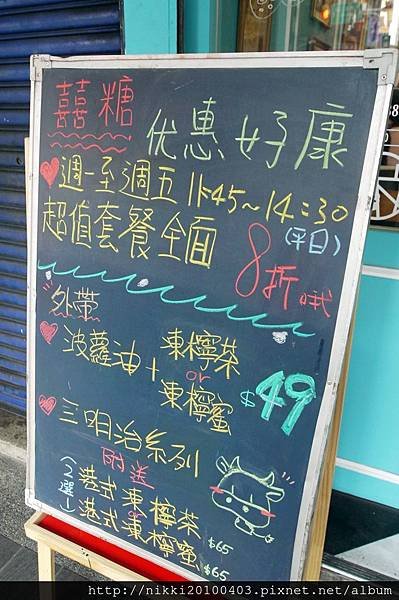 囍糖 优惠好康
週一至週五 11:45~14:30
(平日)
超值套餐全面
8折哦
外帶
波蘿油+凍檸茶
or
凍檸蜜
$49
三明治系列
附送
(2選1)
港式凍檸茶 $65
or
港式凍檸蜜 $65
http://nikki20100403.pixnet.net/album